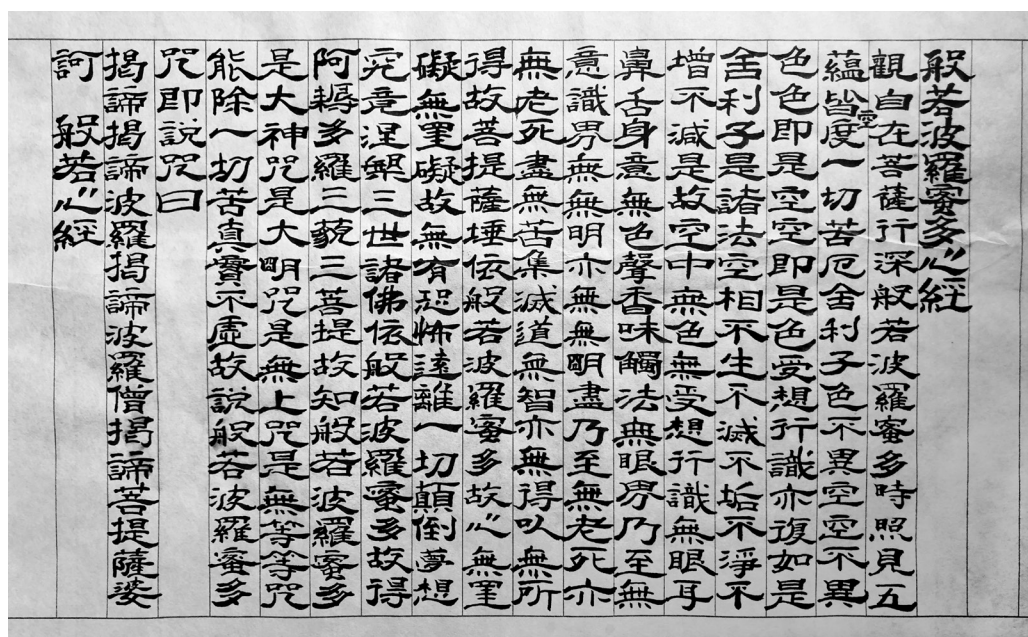 般若波羅蜜多心經
觀自在菩薩行深般若波羅蜜多時照見五
蘊皆空度一切苦厄舍利子色不異空空不異
色色即是空空即是色受想行識亦復如是
舍利子是諸法空相不生不滅不垢不淨不
增不減是故空中無色無受想行識無眼耳
鼻舌身意無色聲香味觸法無眼界乃至無
意識界無無明亦無無明盡乃至無老死亦
無老死盡無苦集滅道無智亦無得以無所
得故菩提薩埵依般若波羅蜜多故心無罣
礙無罣礙故無有恐怖遠離一切顛倒夢想
究竟涅槃三世諸佛依般若波羅蜜多故得
阿耨多羅三藐三菩提故知般若波羅蜜多
是大神咒是大明咒是無上咒是無等等咒
能除一切苦真實不虛故說般若波羅蜜多
咒即說咒曰
揭諦揭諦波羅揭諦波羅僧揭諦菩提薩婆
訶 般若心經